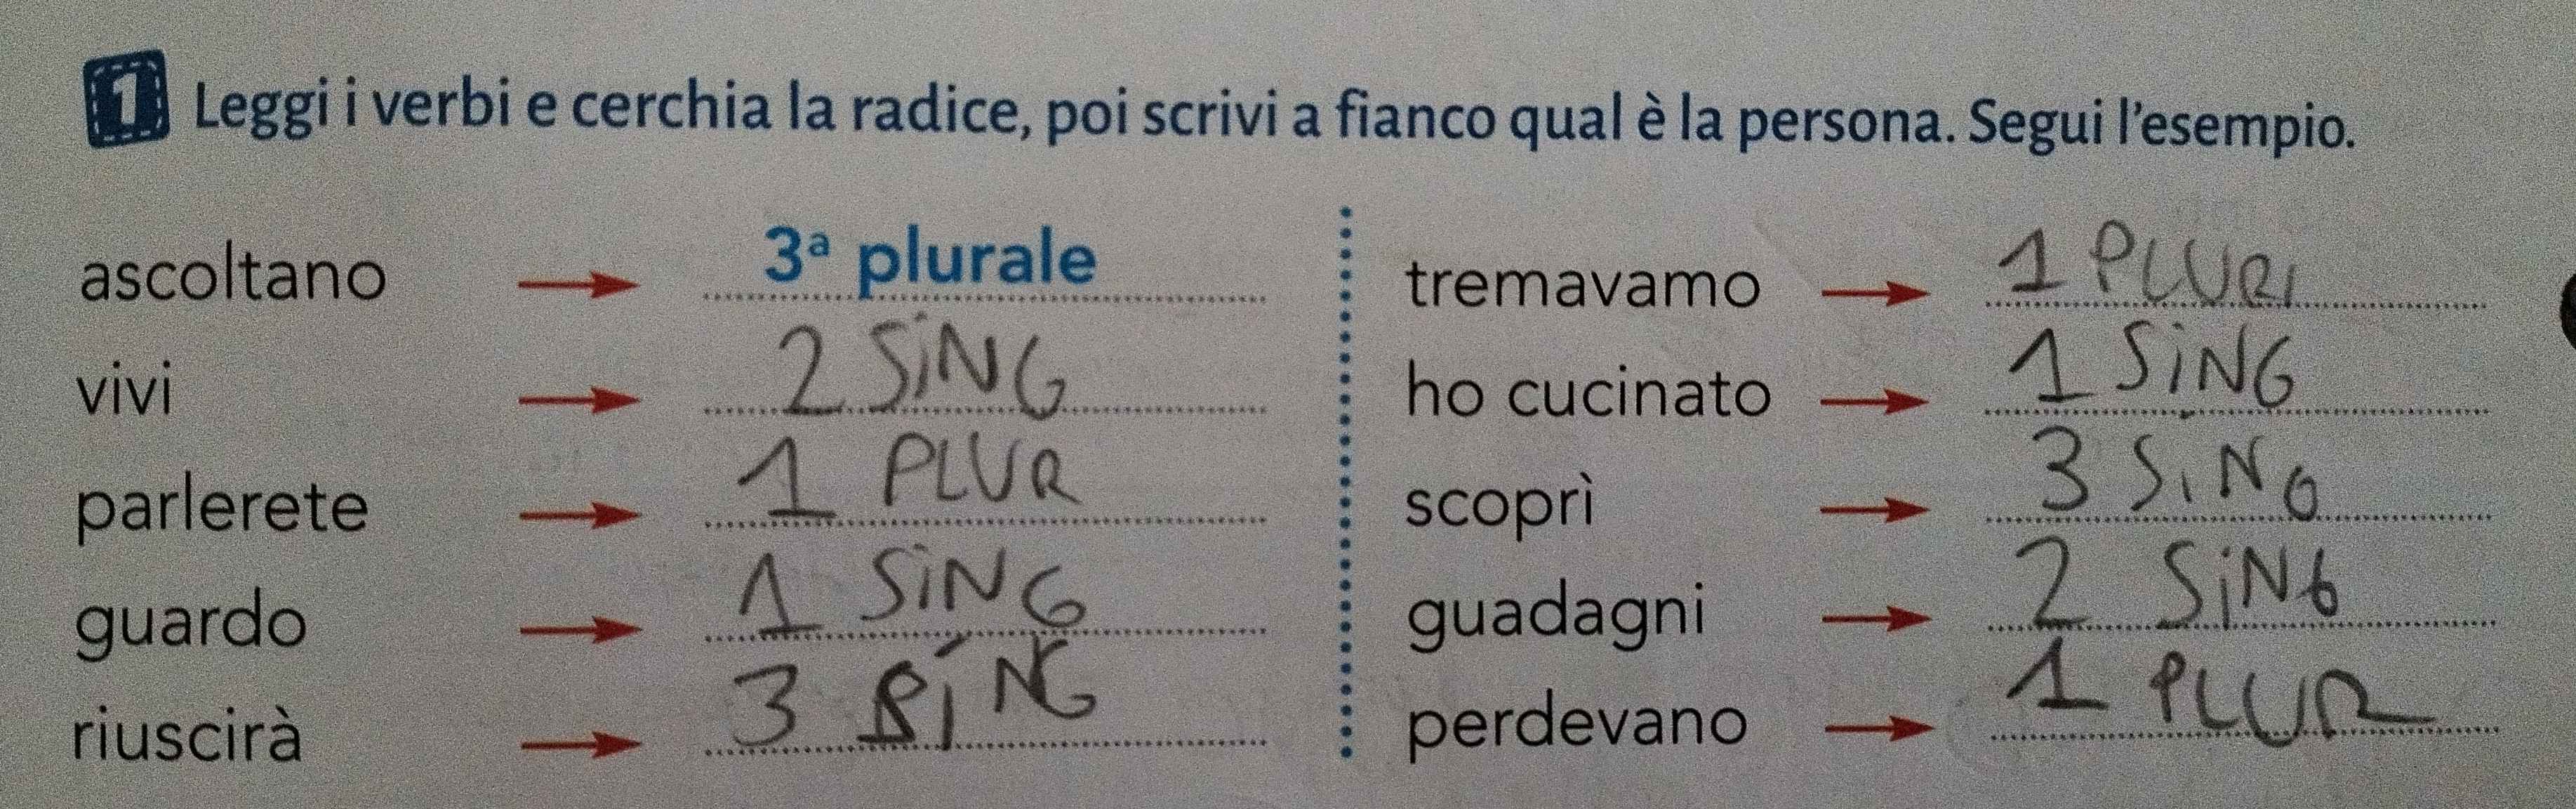 1 Leggi i verbi e cerchia la radice, poi scrivi a fianco qual è la persona. Segui l'esempio.
ascoltano 3ª plurale
vivi 2 SiNG
parlerete 1 PLUR
guardo 1 SiNG
riuscirà 3 SiNG
tremavamo 1 PLURI
ho cucinato 1 SiNG
scoprì 3 SiNG
guadagni 2 SiNG
perdevano 1 PLUR